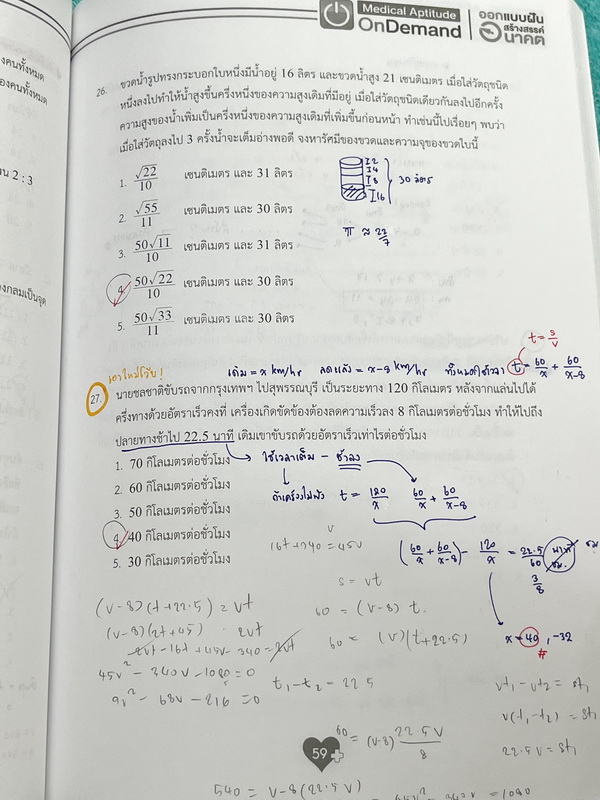 Medical Aptitude
OnDemand
ออกแบบฝัน
สร้างสรรค์
อนาคต
26. ขวดน้ำรูปทรงกระบอกใบหนึ่งมีน้ำอยู่ 16 ลิตร และขวดน้ำสูง 21 เซนติเมตร เมื่อใส่วัตถุชนิด
หนึ่งลงไปทำให้น้ำสูงขึ้นครึ่งหนึ่งของความสูงเดิมที่มีอยู่ เมื่อใส่วัตถุชนิดเดียวกันลงไปอีกครั้ง
ความสูงของน้ำเพิ่มเป็นครึ่งหนึ่งของความสูงเดิมที่เพิ่มขึ้นก่อนหน้า ทำเช่นนี้ไปเรื่อยๆ พบว่า
เมื่อใส่วัตถุลงไป 3 ครั้งน้ำจะเต็มอ่างพอดี จงหารัศมีของขวดและความจุของขวดใบนี้
1. √22/10 เซนติเมตร และ 31 ลิตร
2. √55/11 เซนติเมตร และ 30 ลิตร
3. 50√11/10 เซนติเมตร และ 31 ลิตร
4. 50√22/10 เซนติเมตร และ 30 ลิตร
5. 50√33/11 เซนติเมตร และ 30 ลิตร
I2
I4
I8
I16
30 ลิตร
π ≈ 22/7
t = s/v
เดิม = x km/hr ลดแล้ว = x-8 km/hr t = 60/x + 60/x-8
27. นายชลชาติขับรถจากกรุงเทพฯ ไปสุพรรณบุรี เป็นระยะทาง 120 กิโลเมตร หลังจากแล่นไปได้
ครึ่งทางด้วยอัตราเร็วคงที่ เครื่องเกิดขัดข้องต้องลดความเร็วลง 8 กิโลเมตรต่อชั่วโมง ทำให้ไปถึง
ปลายทางช้าไป 22.5 นาที เดิมเขาขับรถด้วยอัตราเร็วเท่าไรต่อชั่วโมง
1. 70 กิโลเมตรต่อชั่วโมง
2. 60 กิโลเมตรต่อชั่วโมง
3. 50 กิโลเมตรต่อชั่วโมง
4. 40 กิโลเมตรต่อชั่วโมง
5. 30 กิโลเมตรต่อชั่วโมง
ถ้าเครื่องไม่พัง t = 120/x 60/x + 60/x-8
(60/x + 60/x-8) - 120/x = 22.5/60
3/8
x = 40, -32
16t+340 = 45v
s = vt
60 = (v-8) t
60 = (v)(t+22.5)
(v-8)(t+22.5) = vt
(v-8)(2t+45) 2vt
45v² - 340v - 1080 = 0
9v² - 68v - 216 = 0
t₁-t₂ - 22.5
vt₁ - vt₂ = 8t₁
v(t₁-t₂) = 8t₁
22.5v = 8t₁
60 = (v-8) 22.5v/8
540 = v-8(22.5v)
59